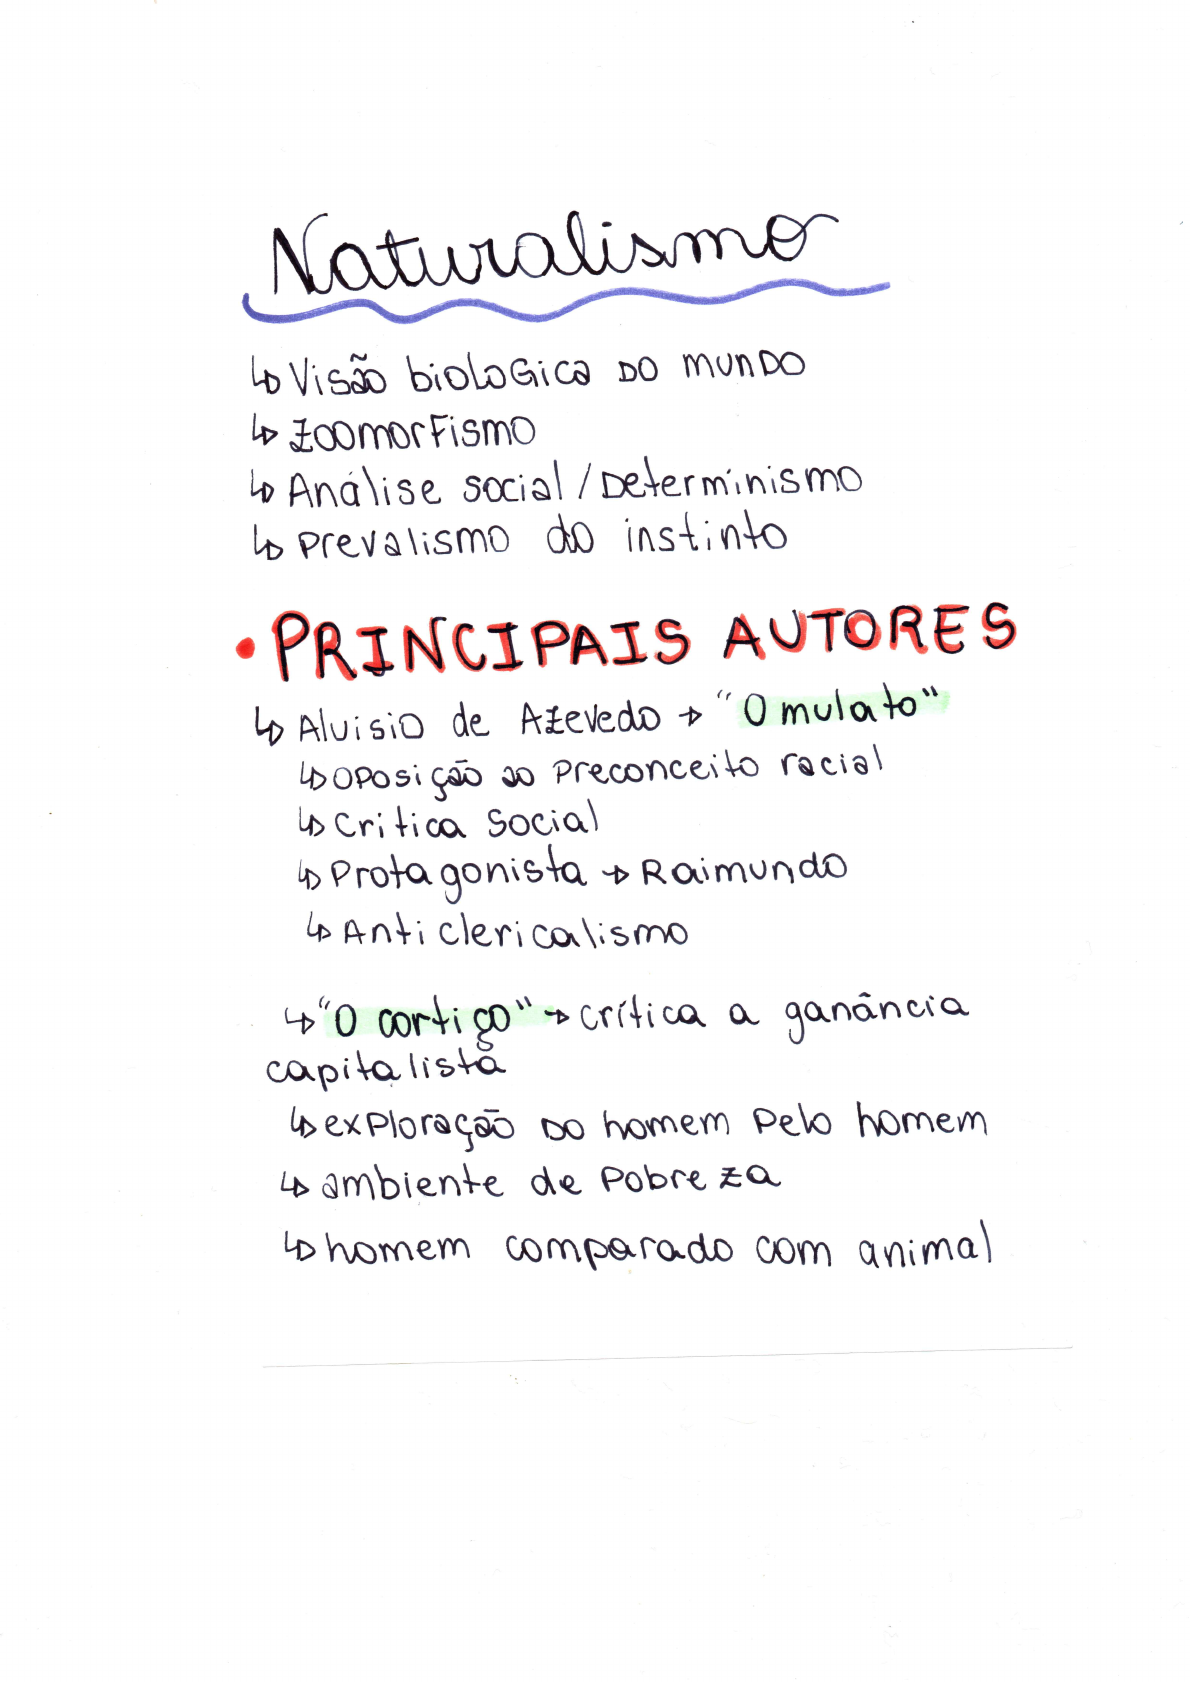 Naturalismo
↳ Visão biologica do mundo
↳ Zoomorfismo
↳ Análise social / Determinismo
↳ Prevalismo do instinto
• PRINCIPAIS AUTORES
↳ Aluisio de Azevedo → "O mulato"
↳ oposição ao preconceito racial
↳ critica Social
↳ Protagonista → Raimundo
↳ Anticlericalismo
↳ "O cortiço" → crítica a ganância
capitalista
↳ exploração do homem pelo homem
↳ ambiente de pobreza
↳ homem comparado com animal